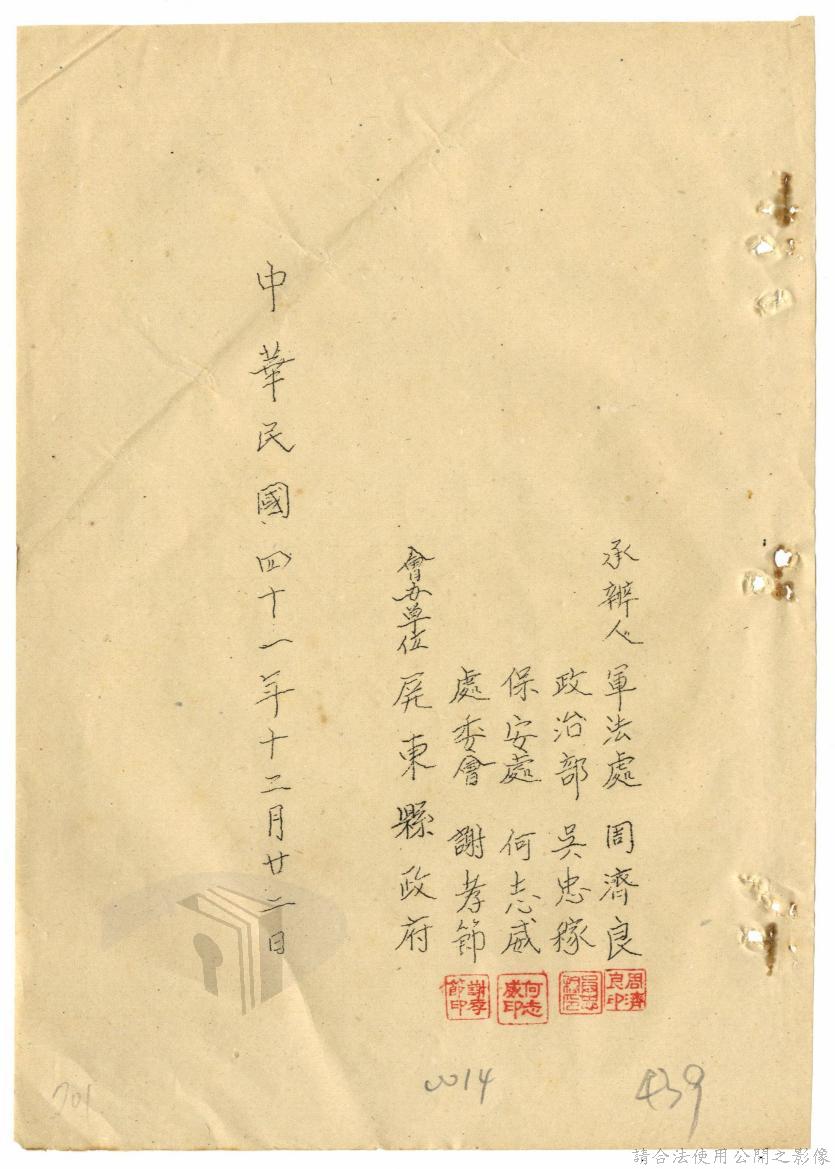 承辦人 軍法處 周濟良
政治部 吳忠稼
保安處 何志威
處委會 謝孝節
會办单位 屏東縣政府
中華民國四十一年十二月廿二日
周濟良印
何志威印
謝孝節印
701
0014
439
請合法使用公開之影像